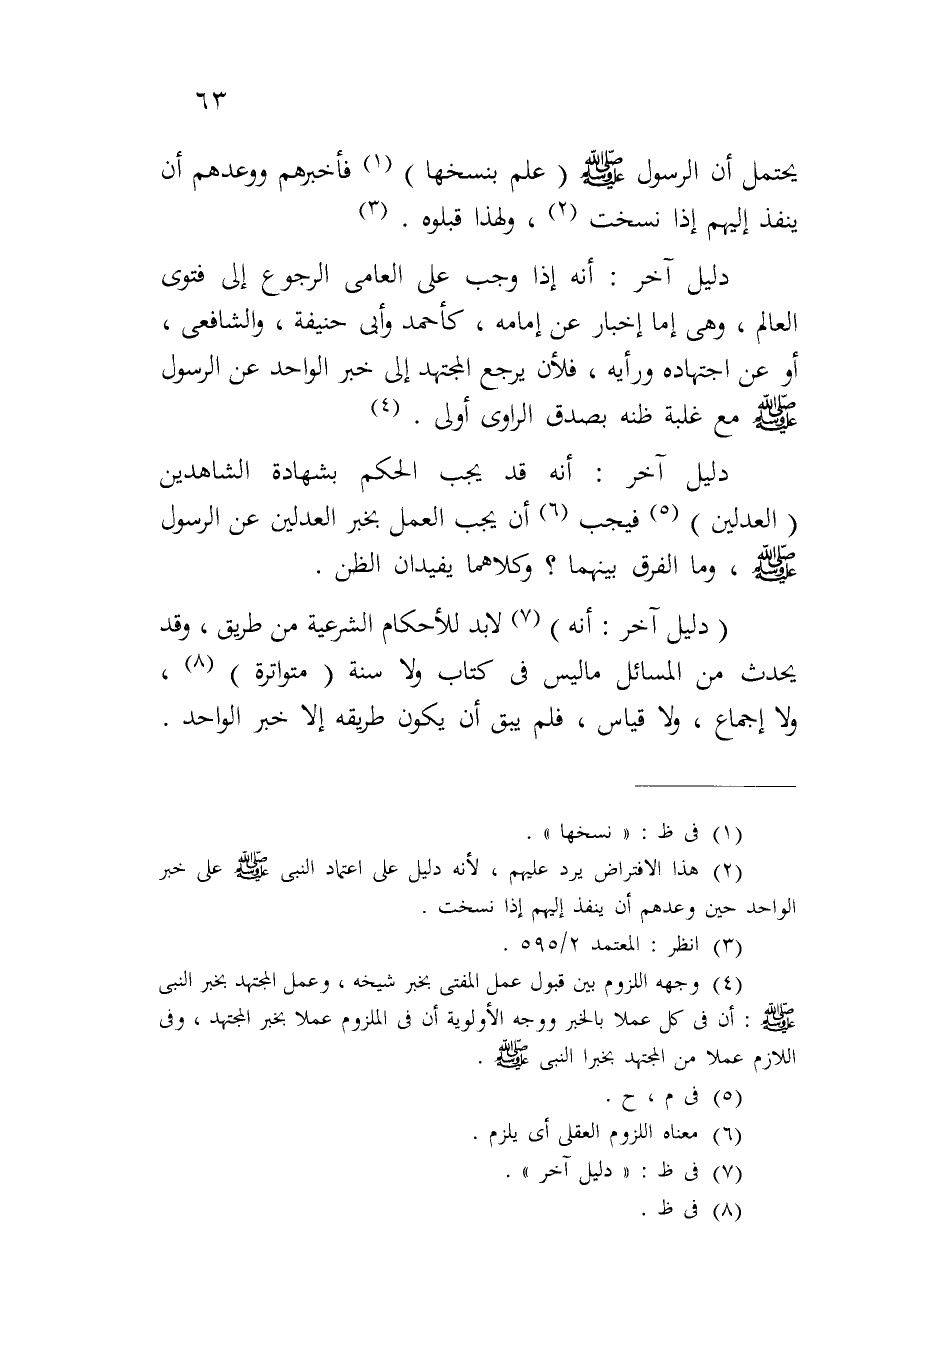 ٦٣
يحتمل أن الرسول ﷺ ( علم بنسخها ) (١) فأخبرهم ووعدهم أن
ينفذ إليهم إذا نسخت (٢) ، ولهذا قبلوه . (٣)
دليل آخر : أنه إذا وجب على العامى الرجوع إلى فتوى
العالم ، وهى إما إخبار عن إمامه ، كأحمد وأبى حنيفة ، والشافعى ،
أو عن اجتهاده ورأيه ، فلأن يرجع المجتهد إلى خبر الواحد عن الرسول
ﷺ مع غلبة ظنه بصدق الراوى أولى . (٤)
دليل آخر : أنه قد يجب الحكم بشهادة الشاهدين
( العدلين ) (٥) فيجب (٦) أن يجب العمل بخبر العدلين عن الرسول
ﷺ ، وما الفرق بينهما ؟ وكلاهما يفيدان الظن .
( دليل آخر : أنه ) (٧) لابد للأحكام الشرعية من طريق ، وقد
يحدث من المسائل ماليس فى كتاب ولا سنة ( متواترة ) (٨) ،
ولا إجماع ، ولا قياس ، فلم يبق أن يكون طريقه إلا خبر الواحد .
(١) فى ظ : « نسخها » .
(٢) هذا الافتراض يرد عليهم ، لأنه دليل على اعتماد النبى ﷺ على خبر
الواحد حين وعدهم أن ينفذ إليهم إذا نسخت .
(٣) انظر : المعتمد ٥٩٥/٢ .
(٤) وجهه اللزوم بين قبول عمل المفتى بخبر شيخه ، وعمل المجتهد بخبر النبى
ﷺ : أن فى كل عملا بالخبر ووجه الأولوية أن فى الملزوم عملا بخبر المجتهد ، وفى
اللازم عملا من المجتهد بخبرا النبى ﷺ .
(٥) فى م ، ح .
(٦) معناه اللزوم العقلى أى يلزم .
(٧) فى ظ : « دليل آخر » .
(٨) فى ظ .